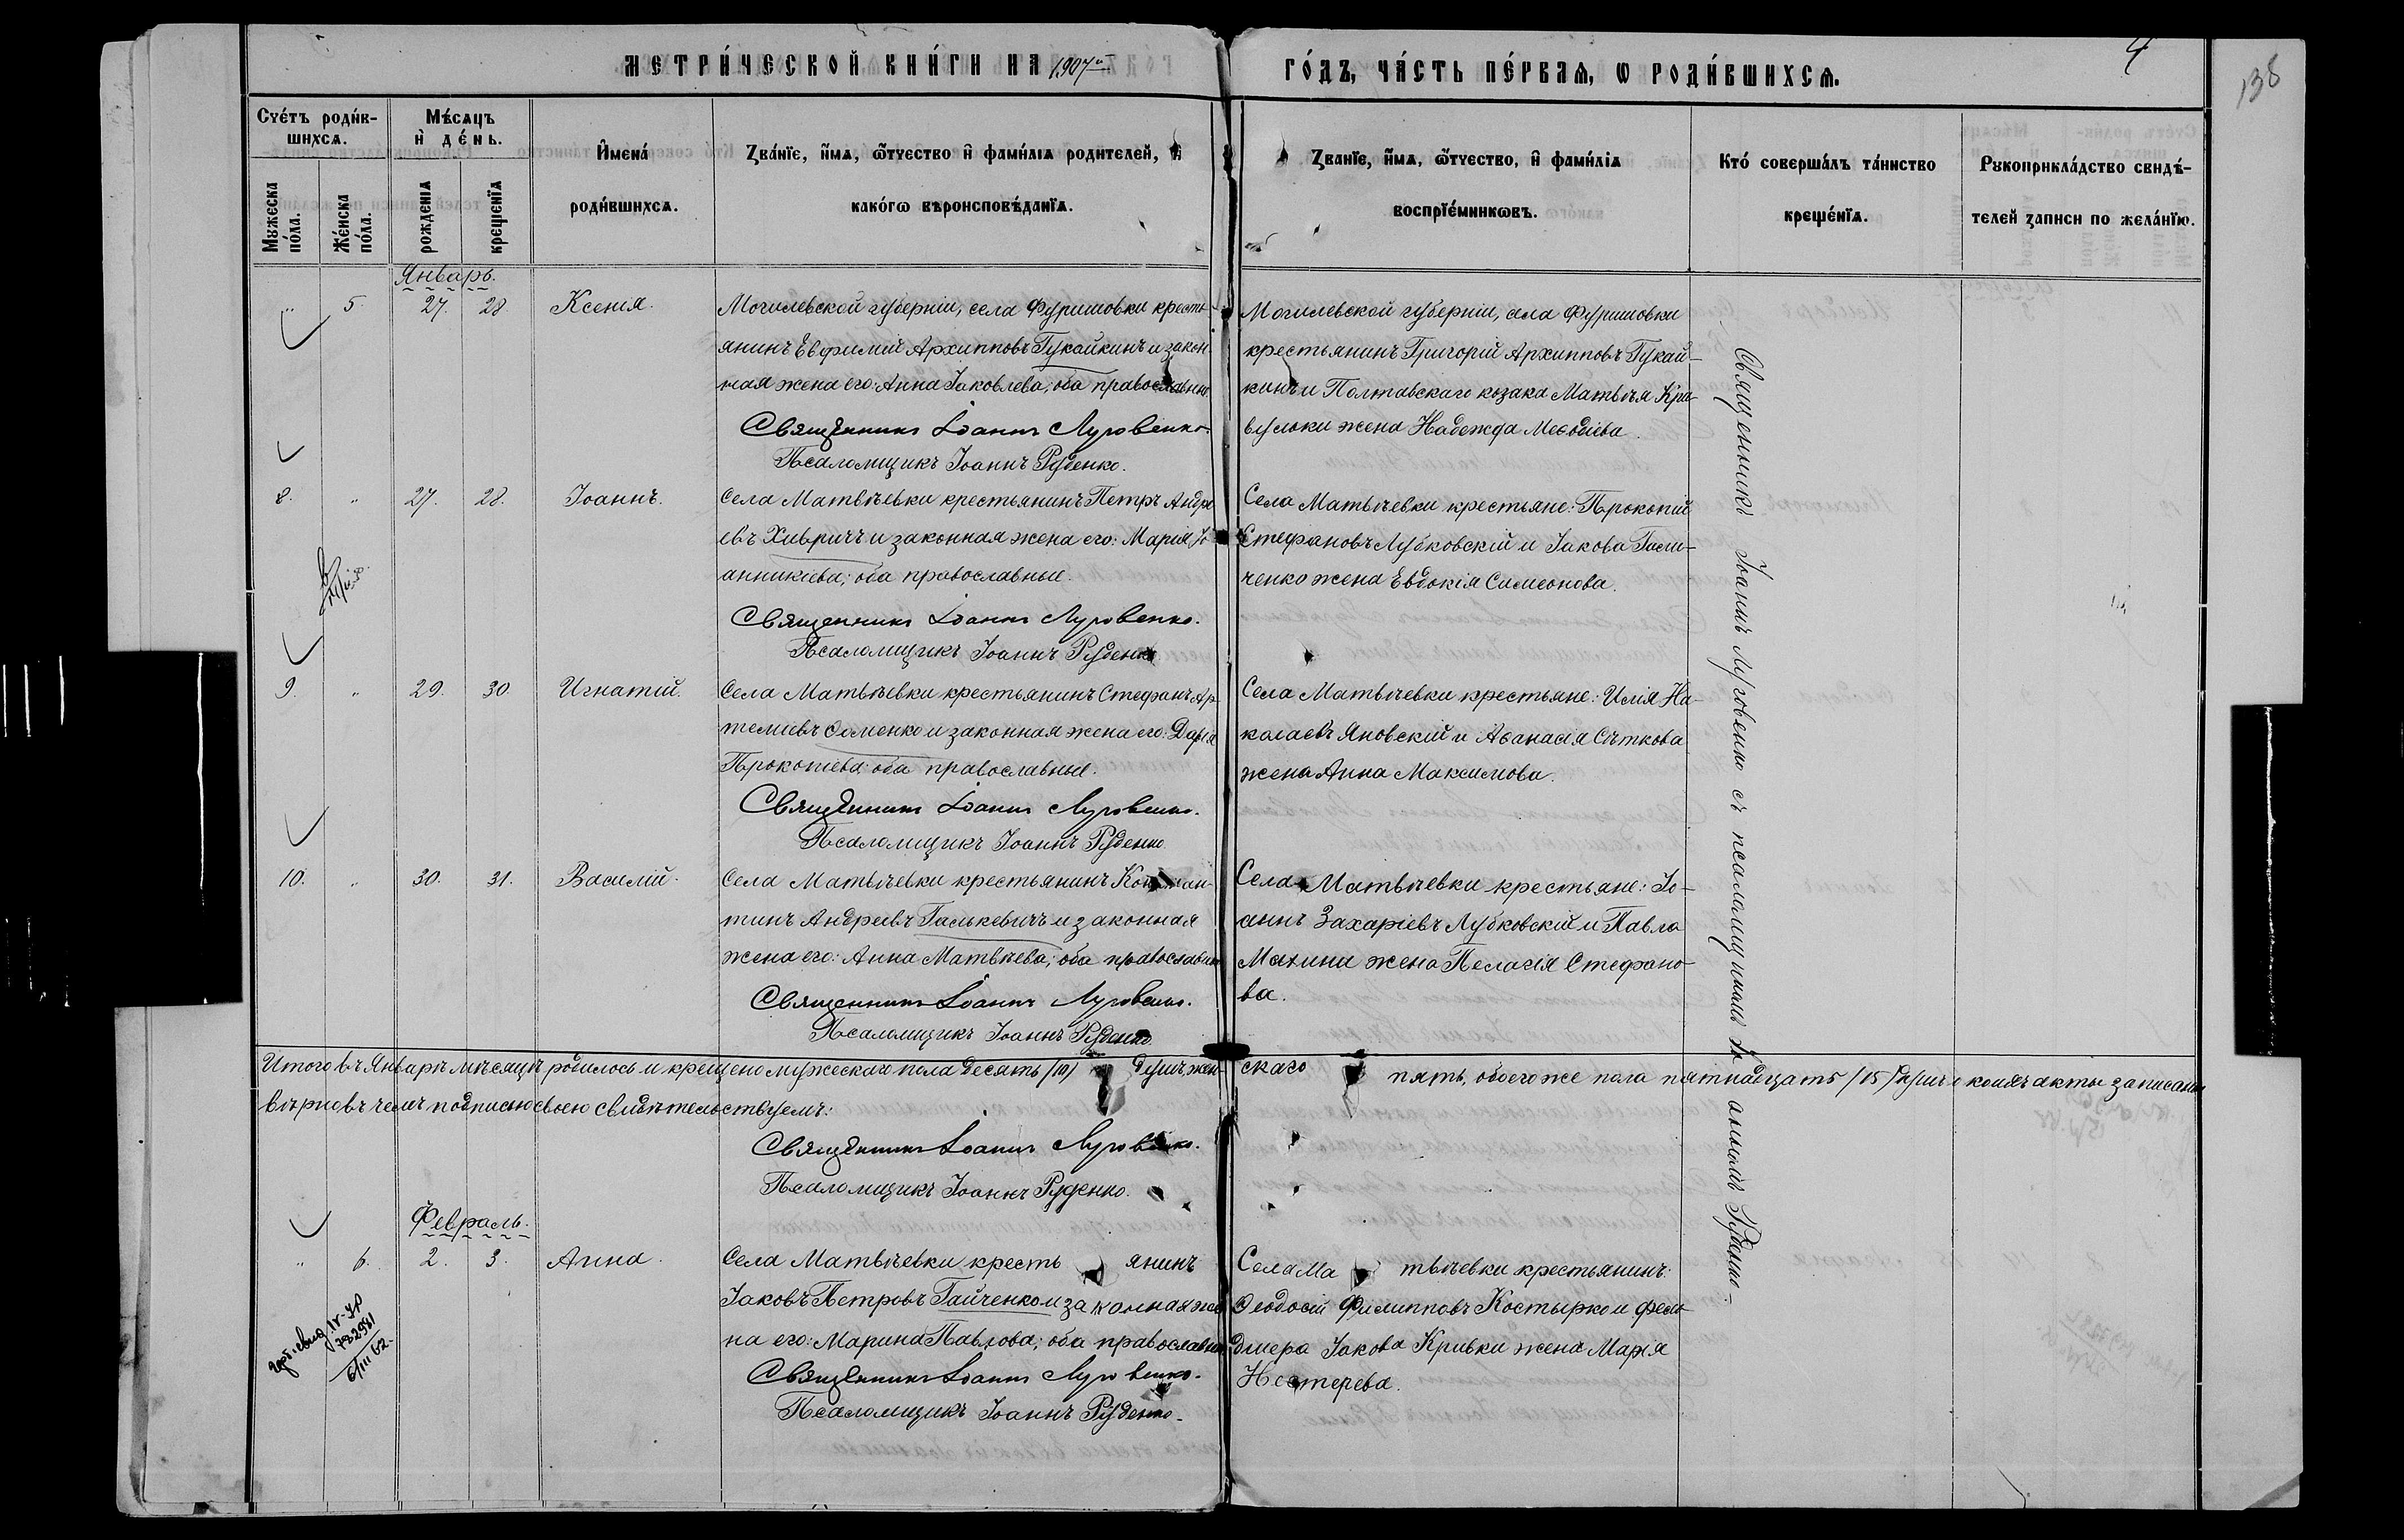 МЕТРИ́ЧЕСКОЙ КНИ́ГИ НА 1907й
ГО́ДЪ, ЧА́СТЬ ПЕ́РВАѦ, Ѡ РОДИ́ВШИХСѦ.
4
138
Счéтъ роди́в-
шихсѧ.
Мужеска
по́ла.
Же́нска
по́ла.
Мѣ́сѧцъ
и҆ де́нь.
рожденіѧ
крещенїѧ
И҆мена́
роди́вшихсѧ.
Зва́нїе, и҆́мѧ, ѻ҆́тчество и҆ фами́лїѧ родителей, и҆
како́гѡ вѣроисповѣ́данїѧ.
Званїе, и҆́мѧ, ѻ҆́тчество, и҆ фами́лїѧ
воспрїе́мникѡвъ.
Кто́ соверша́лъ та́инство
креще́нїѧ.
Рукоприкла́дство свидѣ́-
телей записи по жела́нїю.
Январь.
" 5. 27. 28. Ксенія.
Могилевской губерніи, села Фуришовки кресть-
янинъ Евфимій Архипповъ Гукайкинъ и закон-
ная жена его: Анна Іаковлева; оба православн.
Священникъ Іоаннъ Луговенко.
Псаломщикъ Іоаннъ Руденко.
Могилевской губерніи, села Фуришовки
крестьянинъ Григорій Архипповъ Гукай-
кинъ и Полтавскаго козака Матвѣя Кри-
вульки жена Надежда Меѳодіева.
8. " 27. 28. Іоаннъ.
Села Матвѣевки крестьянинъ Петръ Андре
евъ Хивричъ и законная жена его: Марія Іо
анникіева; оба православные.
Священникъ Іоаннъ Луговенко.
Псаломщикъ Іоаннъ Руденко
Села Матвѣевки крестьяне: Прокопій
Стефановъ Лубковскій и Іакова Гаси-
ченко жена Евдокія Симеонова.
9. " 29. 30. Игнатій.
Села Матвѣевки крестьянинъ Стефанъ Ар
темиевъ Ѳоменко и законная жена его: Дарія
Прокопіева; оба православные.
Священникъ Іоаннъ Луговенко.
Псаломщикъ Іоаннъ Руденко
Села Матвѣевки крестьяне: Илія Ни-
колаевъ Яновскій и Аѳанасія Сѣткова
жена Анна Максимова.
10. " 30. 31. Василій.
Села Матвѣевки крестьянинъ Констан-
тинъ Андреевъ Галькевичъ и законная
жена его: Анна Матвѣева; оба православные
Священникъ Іоаннъ Луговенко.
Псаломщикъ Іоаннъ Руденко.
Села Матвѣевки крестьяне: Іо-
аннъ Захаріевъ Лубковскій и Павла
Махини жена Пелагія Стефано-
ва.
Итого въ Январѣ мѣсяцѣ родилось и крещено мужескаго пола десять /10/ душъ, жен- скаго пять, обоего же пола пятнадцать /15/ душъ о коихъ акты записаны
вѣрно въ чемъ подписью своею свидѣтельствуемъ:
Священникъ Іоаннъ Луговенко.
Псаломщикъ Іоаннъ Руденко.
Февраль.
" 6. 2. 3. Анна.
Села Матвѣевки кресть янинъ
Іаковъ Петровъ Гайченко и законная же
на его: Марина Павлова; оба православн.
Священникъ Іоаннъ Луговенко.
Псаломщикъ Іоаннъ Руденко.
Села Ма твѣевки крестьянинъ:
Ѳеодосій Филипповъ Костырко и фель
дшера Іакова Кривки жена Марія
Нестерева.
IV-УР
782981
6/III 62
Священникъ Іоаннъ Луговенко съ псаломщикомъ Іоанномъ Руденко.